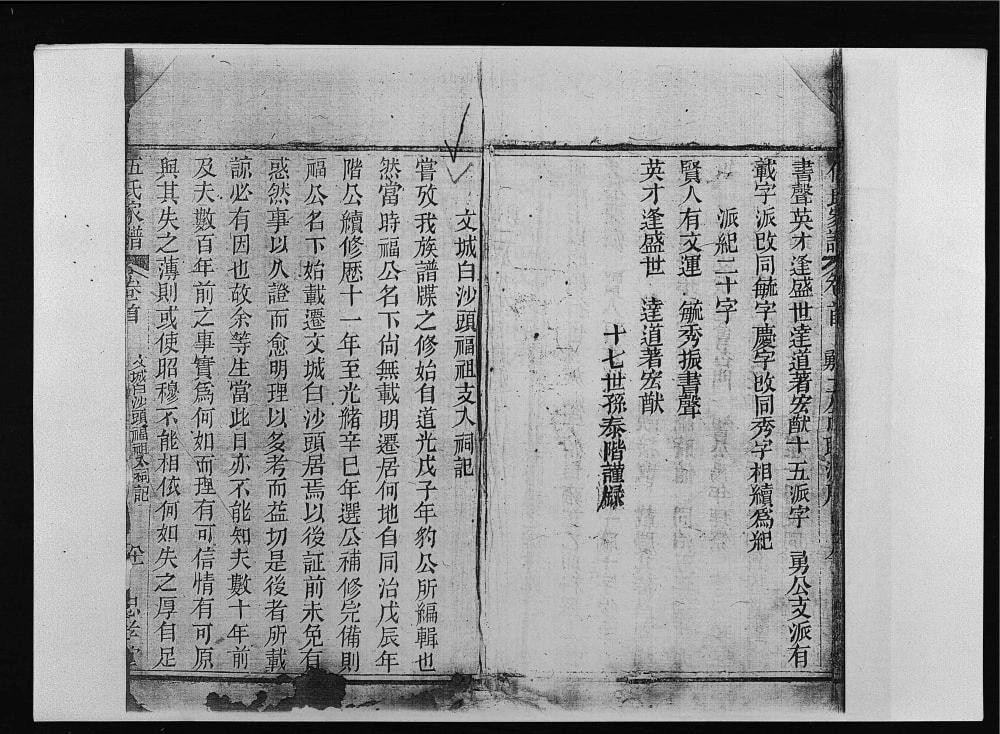 書聲英才逢盛世達道著宏猷十五派字　勇公支派有
載字派改同毓字慶字改同秀字相續爲紀
派紀二十字
賢人有文運　毓秀振書聲
英才逢盛世　達道著宏猷
十七世孫泰階謹錄
文城白沙頭福祖支入祠記
嘗攷我族譜牒之修始自道光戊子年豹公所編輯也
然當時福公名下尙無載明遷居何地自同治戊辰年
階公續修歴十一年至光緒辛巳年選公補修完備則
福公名下始載遷文城白沙頭居焉以後証前未免有
惑然事以久證而愈明理以多考而益切是後者所載
諒必有因也故余等生當此日亦不能知夫數十年前
及夫數百年前之事實爲何如而理有可信情有可原
與其失之薄則或使昭穆不能相依何如失之厚自足
伍氏家譜　卷首　文城白沙頭福祖入祠記